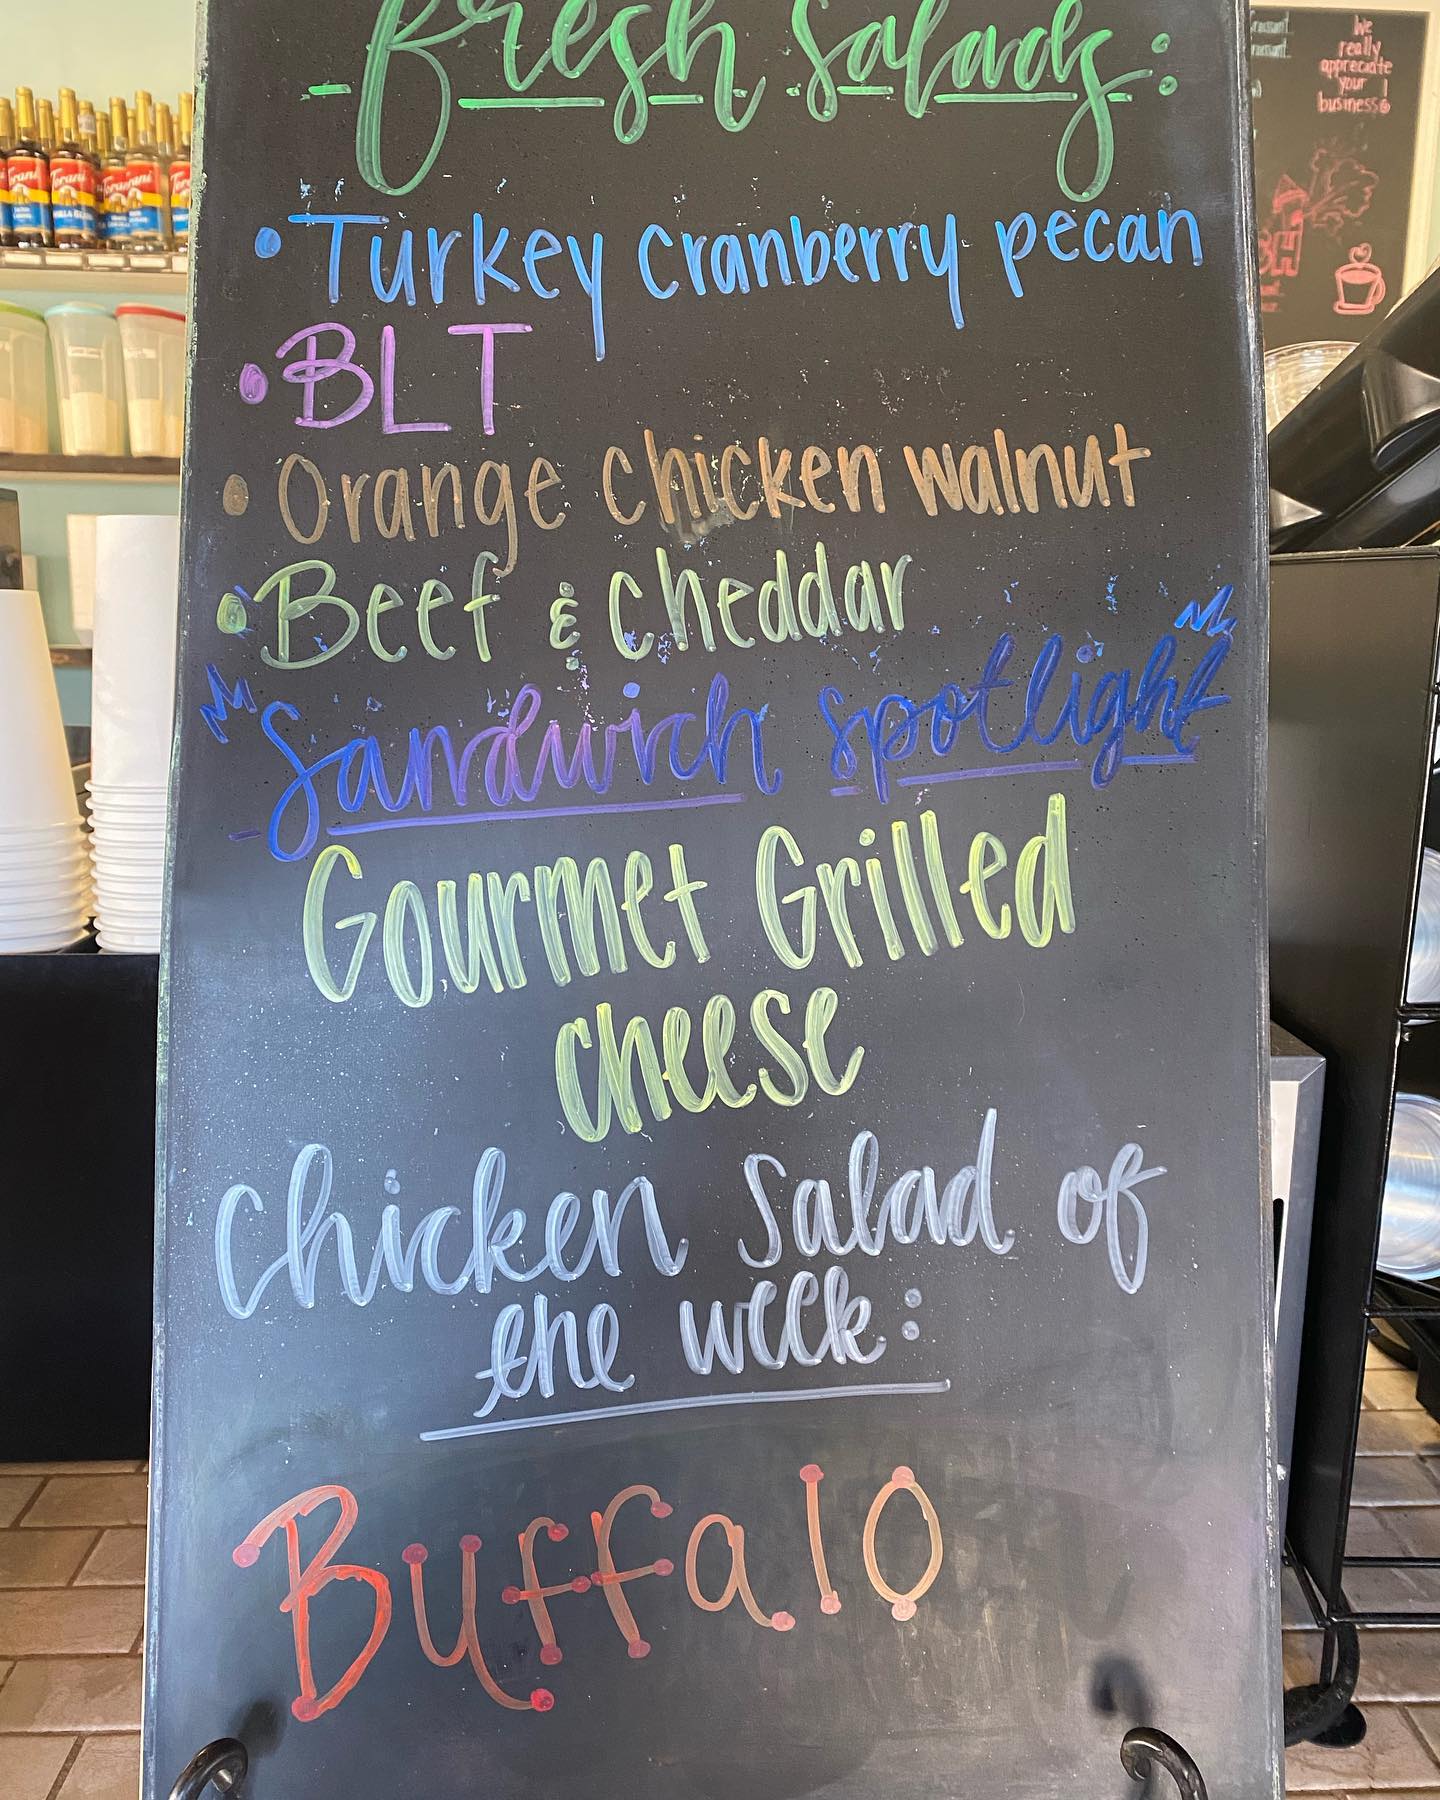 fresh salads:
• Turkey cranberry pecan
• BLT
• Orange chicken walnut
• Beef & cheddar
Sandwich spotlight
Gourmet Grilled
cheese
Chicken Salad of
the week:
Buffalo
We
really
appreciate
your
business
Torani
Torani
Torani